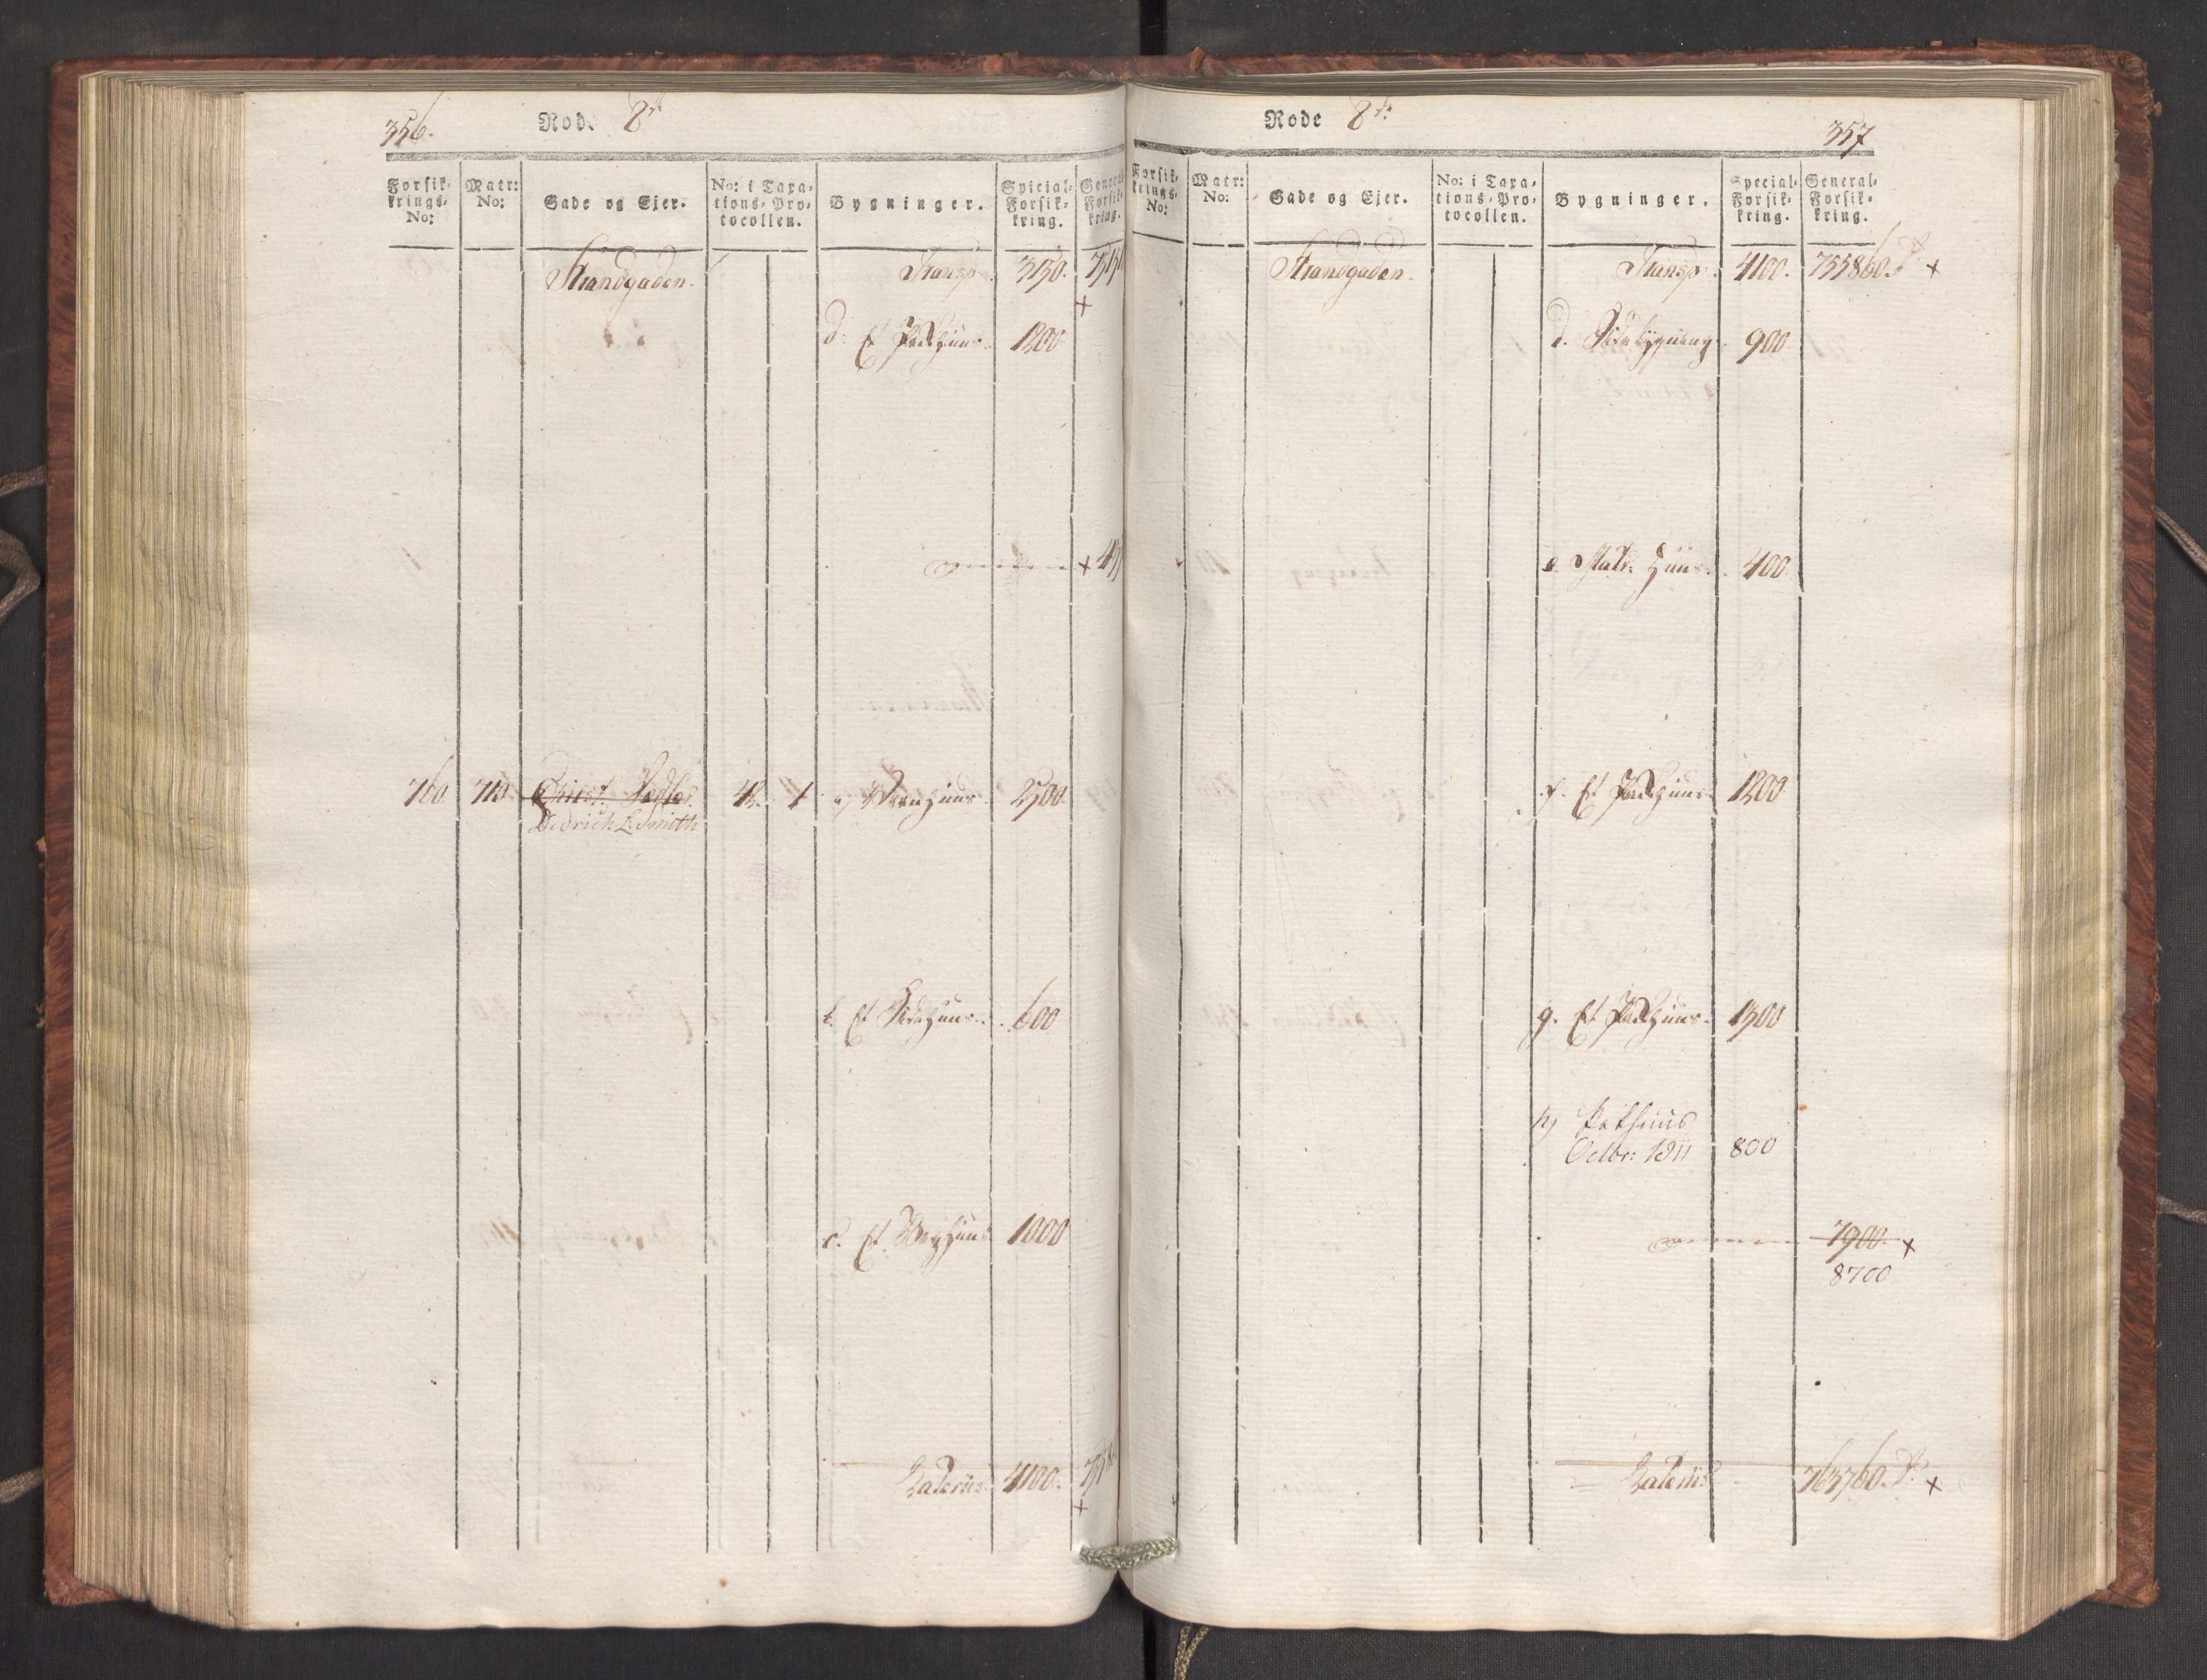 356.
Rode 8de
Forsik-
krings-
No:
Matr:
No:
Gade og Ejer.
No: i Taxa-
tions-Pro-
tocollen.
Bygninger.
Special-
Forsik-
kring.
General
Forsik-
kring.
Strandgaden.
Transp. 3150.
d. Et Pakhuus. 1200
760. 710 Christ. 42. 1 a) Vaanhuus. 2500
Didrich L. Smith
b. Et Sidehuus. 600
c. Et 1000
Lateris 4100.
Rode 8de
357
Forsik-
krings-
No:
Matr:
No:
Gade og Ejer.
No: i Taxa-
tions-Pro-
tocollen.
Bygninger.
Special-
Forsik-
kring.
General-
Forsik-
kring.
Strandgaden.
Transp. 4100. 755860
d. Sidebygning 900
e. Huus. 400
f. Et Pakhuus 1200
g. Et Pakhuus. 1300
h) Pakhuus
Octbr: 1811 800
7900
8700
Lateris 763760